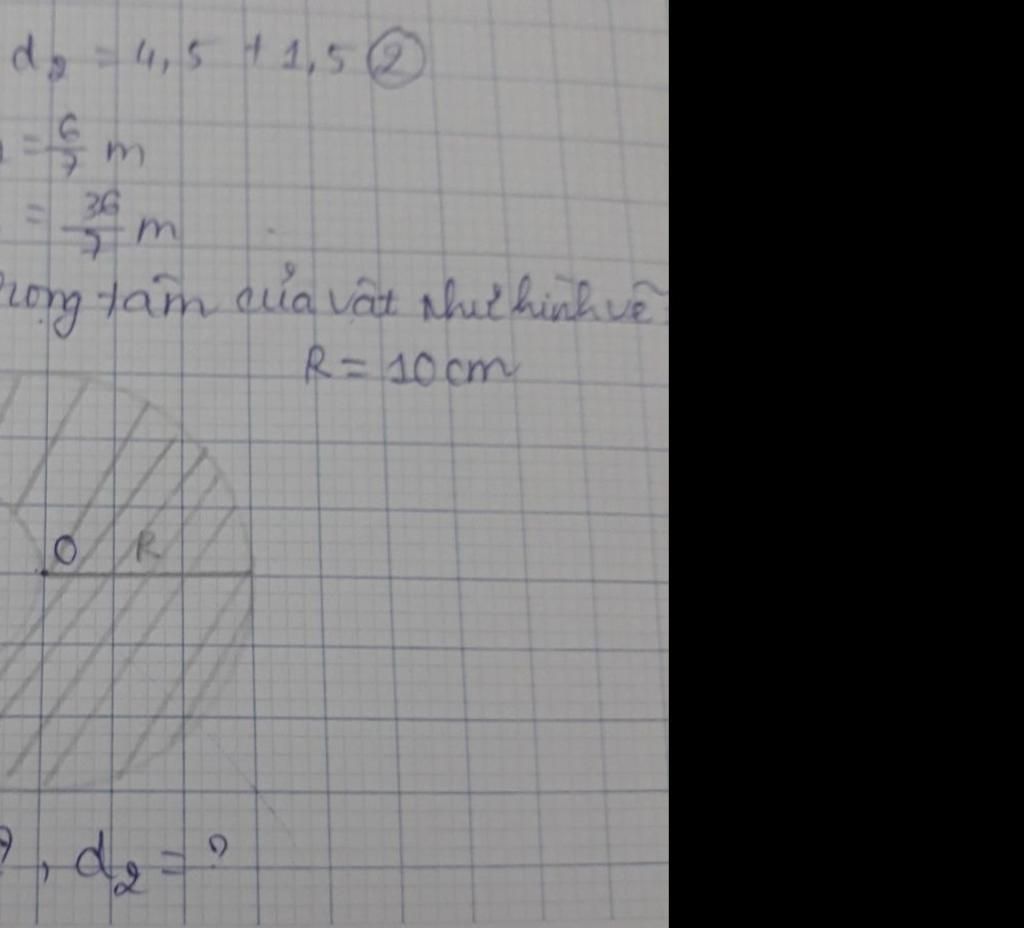 d₂ = 4,5 + 1,5 ②
= 6/7 m
= 36/7 m
trọng tâm của vật như hình vẽ
R = 10 cm
O R
?, d₂ = ?